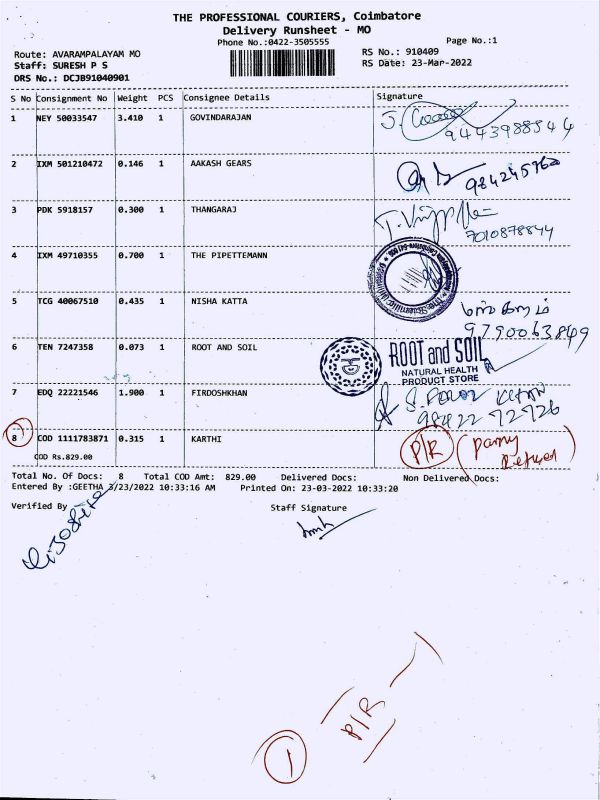 THE PROFESSIONAL COURIERS, Coimbatore
Delivery Runsheet - MO
Phone No.:0422-3505555
Page No.:1
Route: AVARAMPALAYAM MO
RS No.: 910409
Staff: SURESH P S
RS Date: 23-Mar-2022
DRS No.: DCJB91040901
S No Consignment No Weight PCS Consignee Details Signature
1 NEY 50033547 3.410 1 GOVINDARAJAN
9443988544
2 IXM 501210472 0.146 1 AAKASH GEARS
984245760
3 PDK 5918157 0.300 1 THANGARAJ
7010878844
4 IXM 49710355 0.700 1 THE PIPETTEMANN
5 TCG 40067510 0.435 1 NISHA KATTA
9790063849
6 TEN 7247358 0.073 1 ROOT AND SOIL ROOT and SOIL
NATURAL HEALTH
PRODUCT STORE
7 EDQ 22221546 1.900 1 FIRDOSHKHAN
98422 72726
8 COD 1111783871 0.315 1 KARTHI P/R
COD Rs.829.00
Total No. Of Docs: 8 Total COD Amt: 829.00 Delivered Docs: Non Delivered Docs:
Entered By :GEETHA 3/23/2022 10:33:16 AM Printed On: 23-03-2022 10:33:20
Verified By Staff Signature
P/R
1